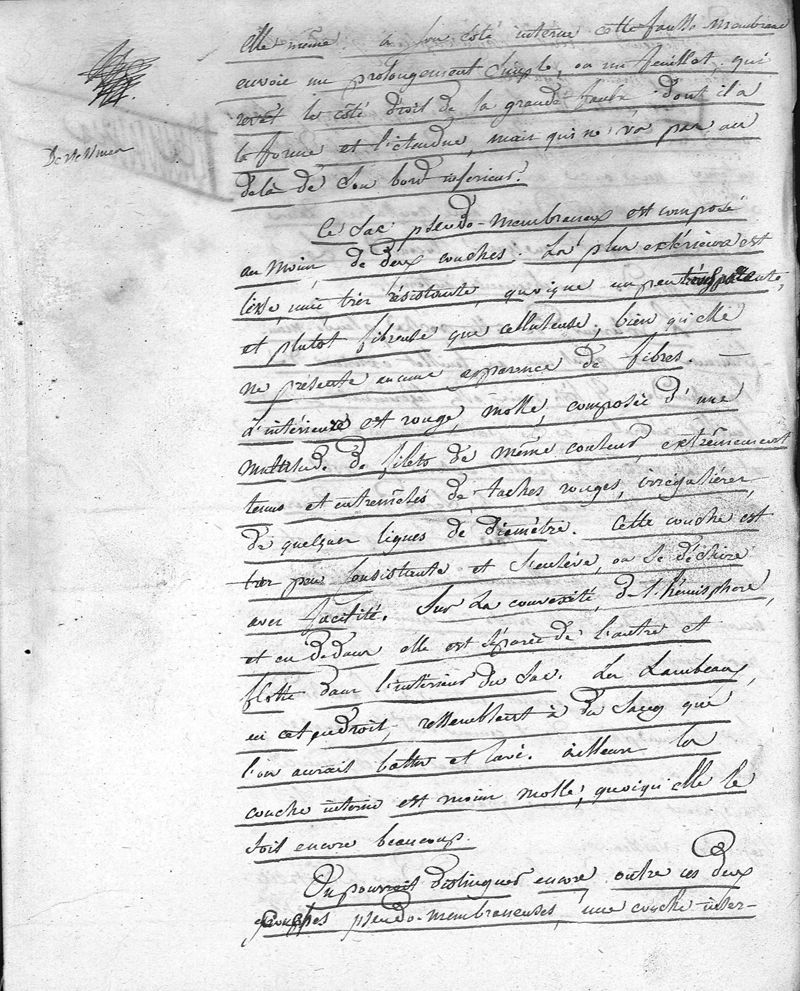 elle même. à son côté interne cette fausse membrane
envoie un prolongement simple, ou un feuillet qui
revêt le côté droit de la grande faulx dont il a
la forme et l'étendue, mais qui ne va pas au
delà de son bord inférieur.
Ce sac pseudo-membraneux est composé
au moins de deux couches. La plus extérieure est
lisse, unie, très résistante, quoique un peu transparente,
et plutot fibreuse que celluleuse, bien qu'elle
ne présente aucune apparence de fibres.
L'intérieure est rouge, molle, composée d'une
multitude de filets de même couleur, extrêmement
tenus et entremêlés de taches rouges, irrégulières,
de quelques lignes de diamètre. Cette couche est
très peu consistante et s'enlève, ou se déchire
avec facilité. Sur la convexité de l'hémisphère,
et en dedans elle est séparée de l'autre et
flotte dans l'intérieur du sac. Les Lambeaux,
en cet endroit, ressemblent à du sang que
l'on aurait battu et lavé. ailleurs la
couche interne est moins molle, quoiqu'elle le
soit encore beaucoup.
On pourroit distinguer encore, outre ces deux
pseudo-membraneuses, une couche inter-